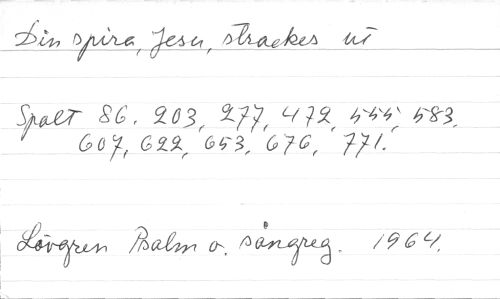 Din spira, Jesu, sträckes ut
Spalt 86. 203, 277, 472, 555, 583,
607, 622, 653, 676, 771.
Lövgren Psalm o. sångreg. 1964.